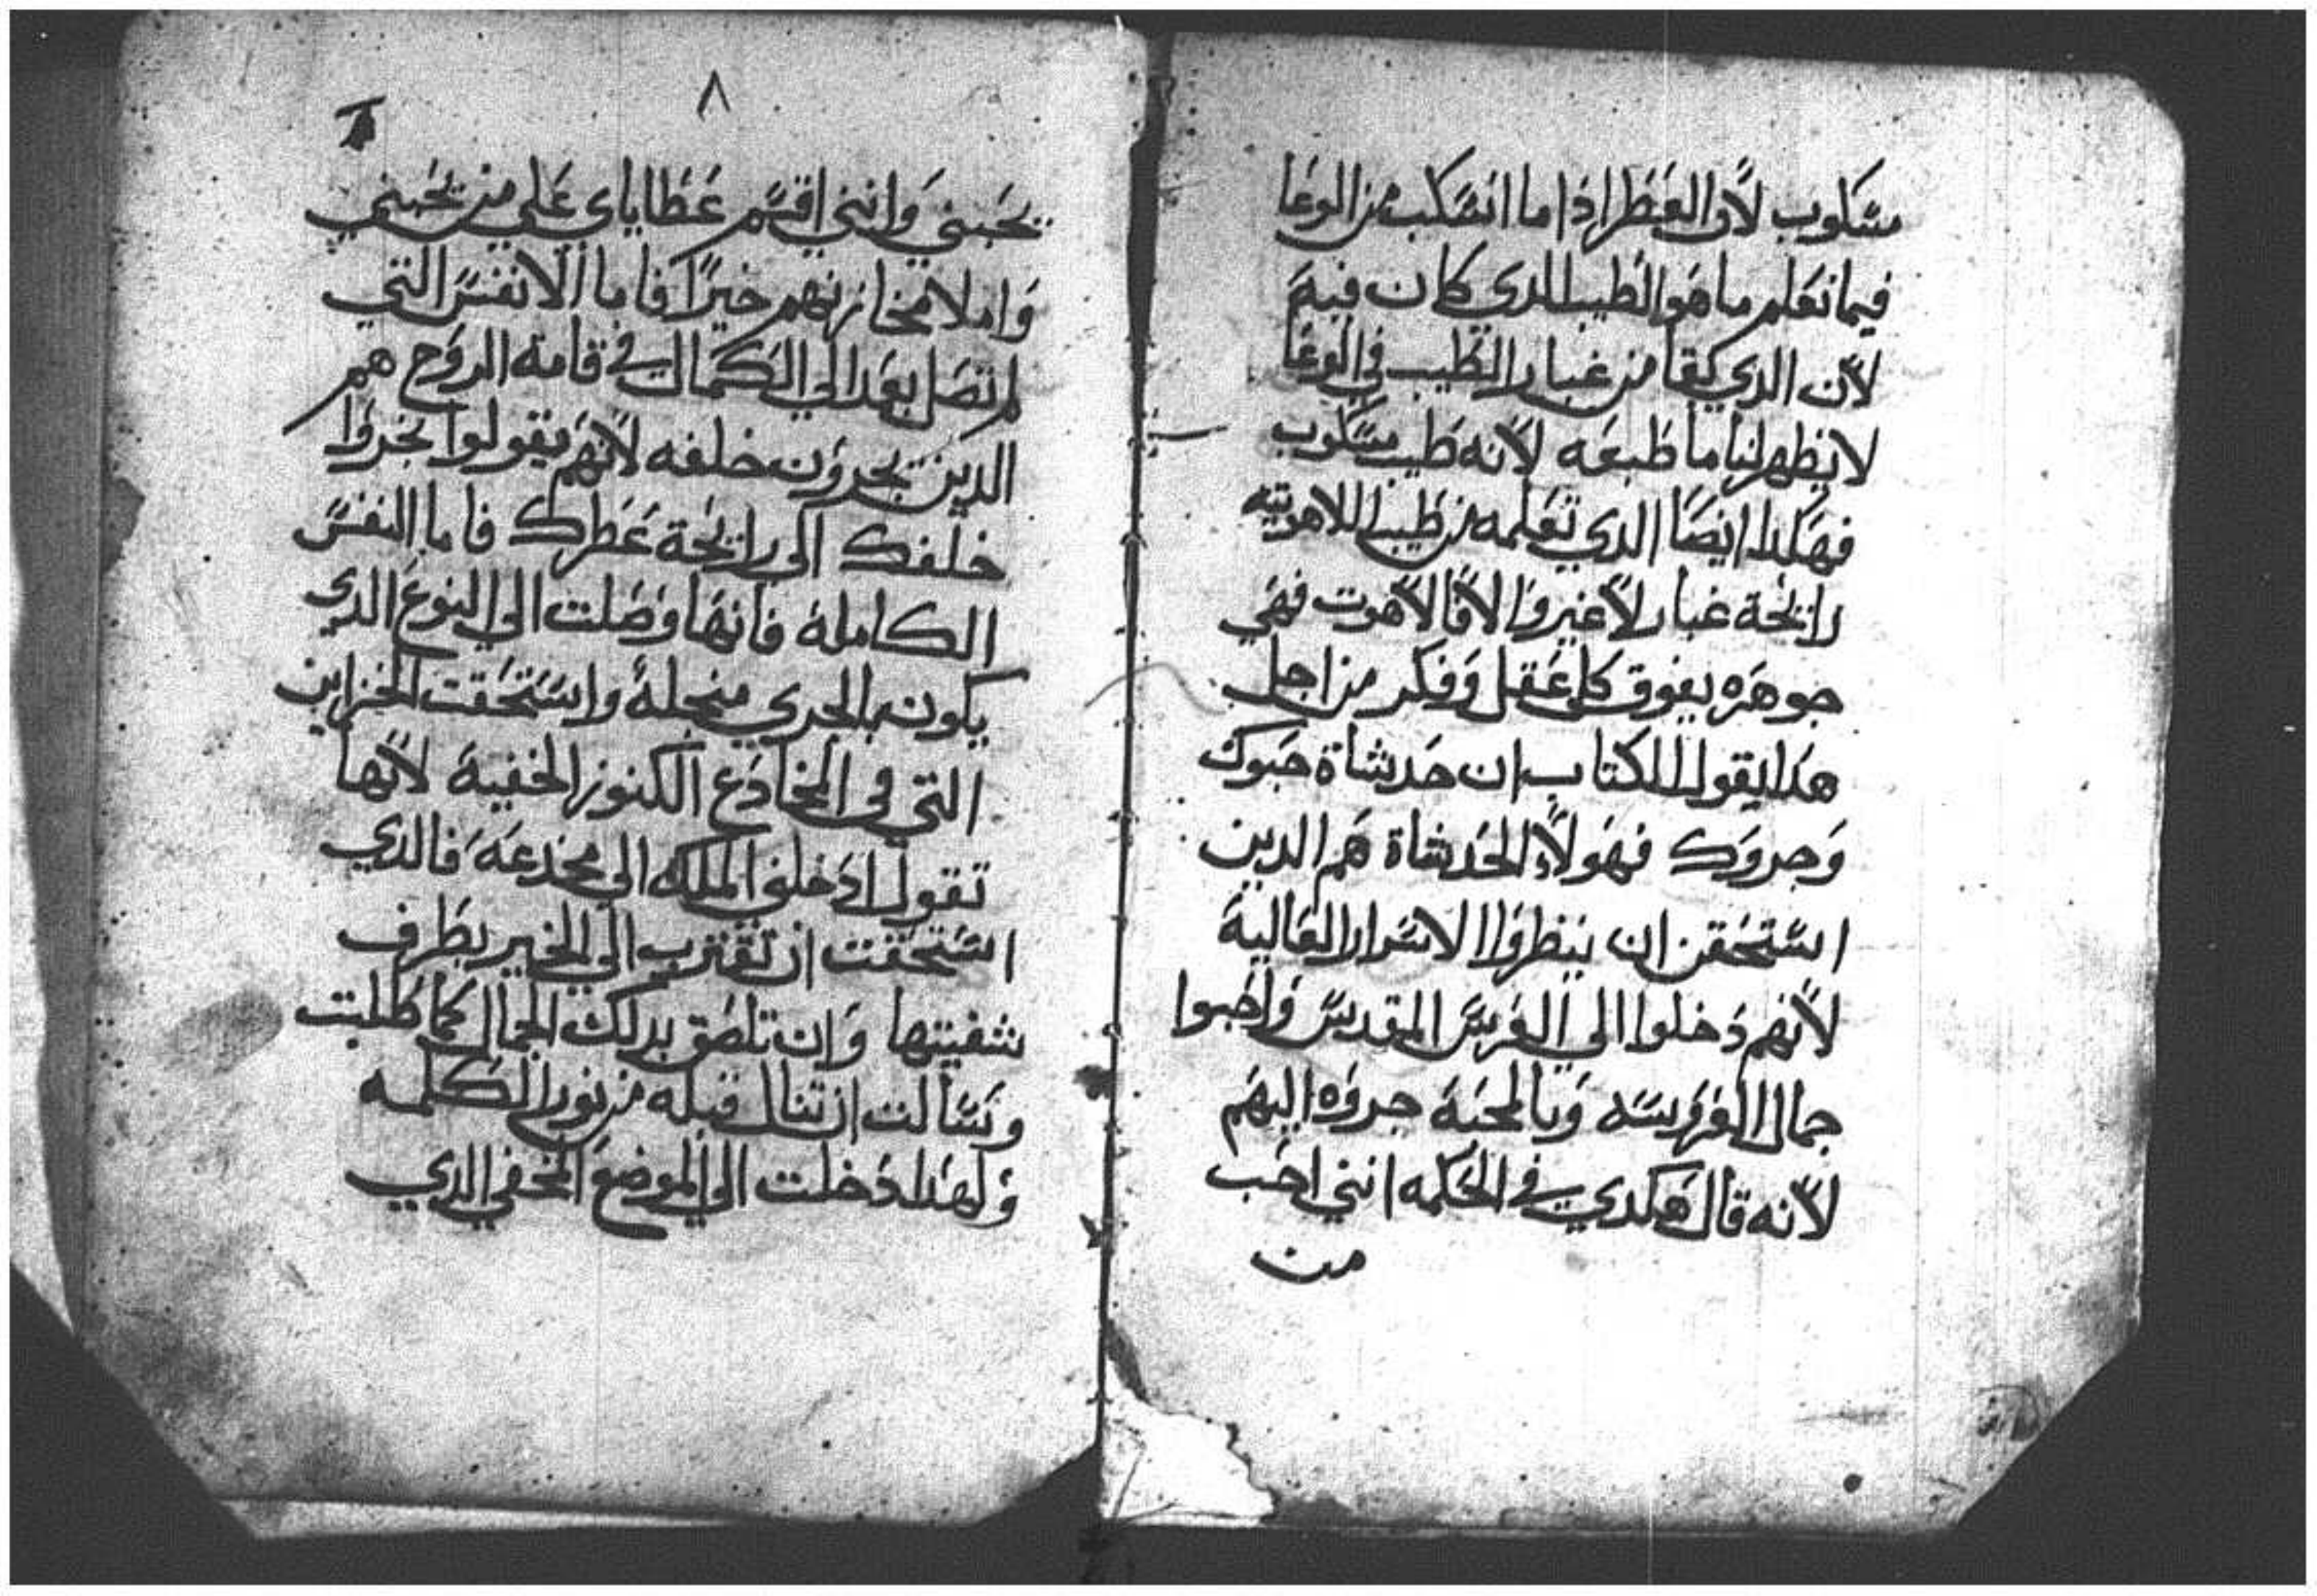 مسكوب لأن العطر اذا ما انسكب من الوعا
فيما نعلم ما هو الطيب الدي كان فيه
لأن الدي يبقا من غبار الطيب في الوعا
لا يظهر لنا ما طبعه لأنه طيب مسكوب
فهكدا ايضا الدي نعلمه من طيب اللاهوتيه
رايحة غبار لا غير والا فالاهوت فهي
جوهره يفوق كل عقل وفكر من اجل
هدا يقول الكتاب ان حدثاة حبوك
وجروك فهولاء الحدثاة هم الدين
استحقن ان ينظروا الاسرار العالية
لأنهم دخلوا الي الفردس المقدس واحبوا
جمال العرسه وبالمحبة جروه اليهم
لأنه قال هكدي في الحكمه انني احب
من
٨
يحبني وانني اقسم عطاياي علي من يحبني
واملا مخازنهم خيرًا فاما الانفس التي
لم تصل بعد الي الكمال في قامة الروح هم
الدين يجرون خلفه لأنهم يقولوا نجروا
خلفك الي رايحة عطرك فاما النفس
الكاملة فانها وصلت الي النوع الدي
يكون بالجري منجله واستحقت الخزاين
التي في المخادع الكنوز الخفية لأنها
تقول ادخلني الملك الي مخدعه فالدي
استحقت ان تقترب الي الخير بطرف
شفيتها وان تلصق بدلك الجمال كما طلبت
وسالت ان تنال قبله من نور الكلمه
ولهدا دخلت الي الموضع المخفي الدي